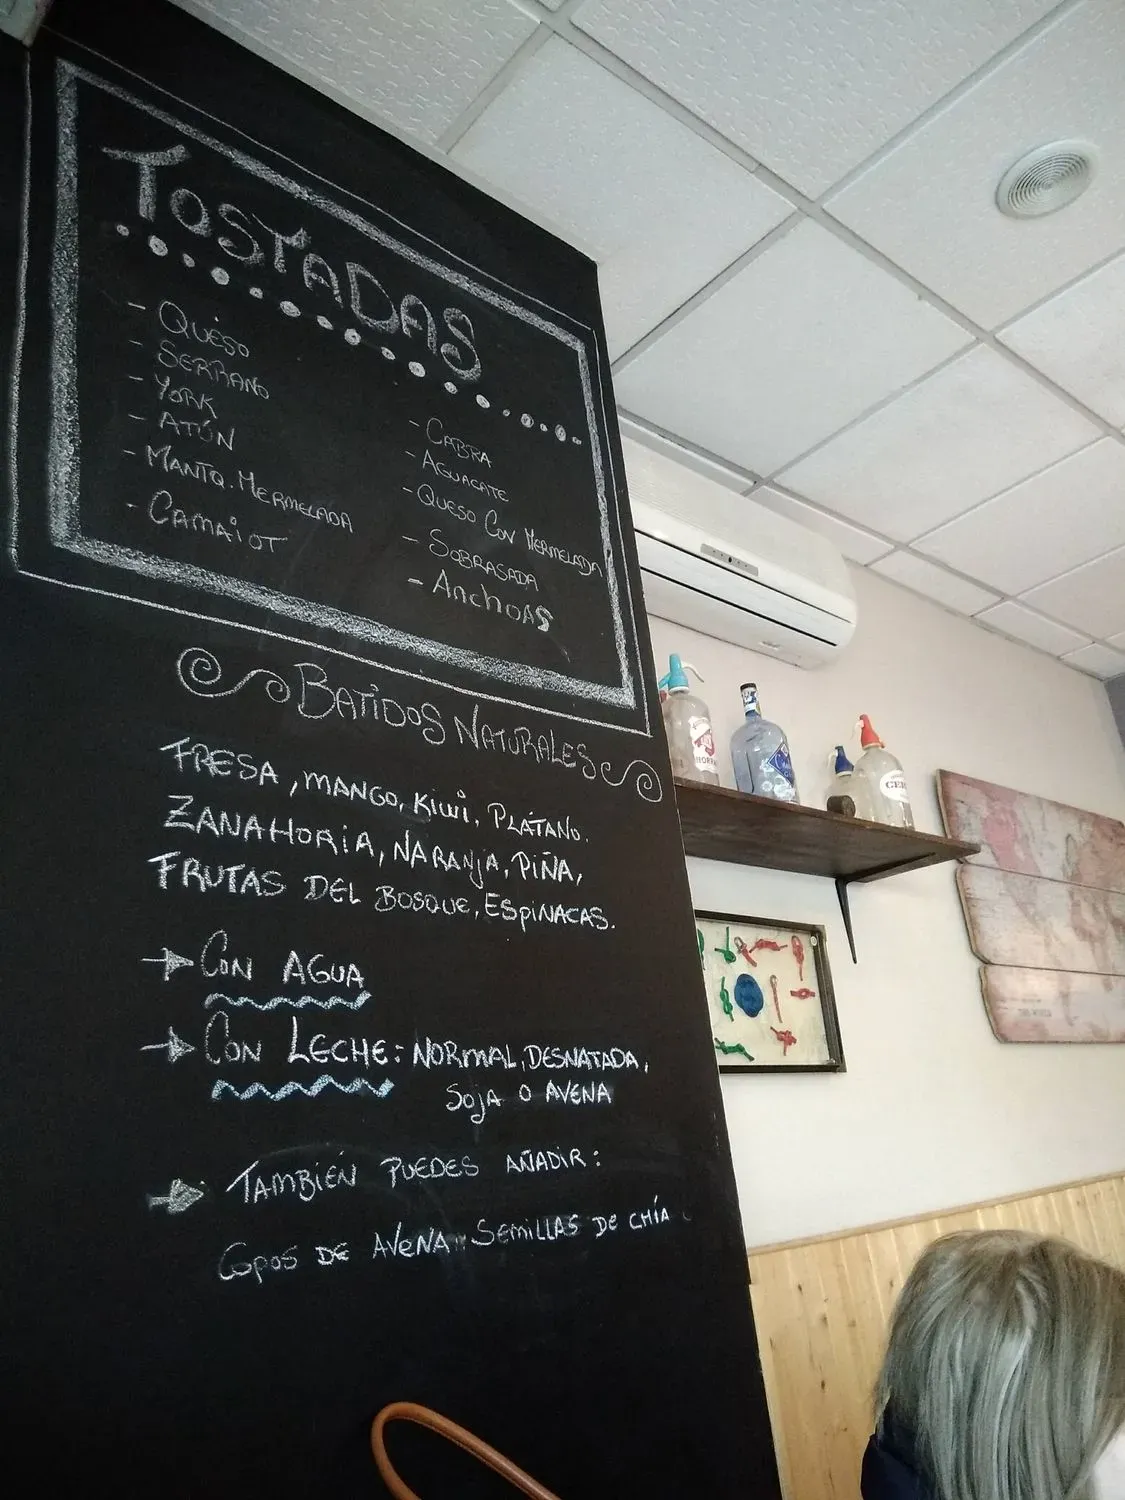 TOSTADAS
- QUESO
- SERRANO
- YORK
- ATÚN
- MANTQ. MERMELADA
- CAMAIOT
- CABRA
- AGUACATE
- QUESO CON MERMELADA
- SOBRASADA
- AnchoAS
BATIDOS NATURALES
FRESA, MANGO, KIWI, PLÁTANO.
ZANAHORIA, NARANJA, PIÑA,
FRUTAS DEL BOSQUE, ESPINACAS.
→ CON AGUA
→ CON LECHE: NORMAL, DESNATADA,
SOJA O AVENA
→ TAMBIÉN PUEDES AÑADIR:
COPOS DE AVENA, SEMILLAS DE CHÍA